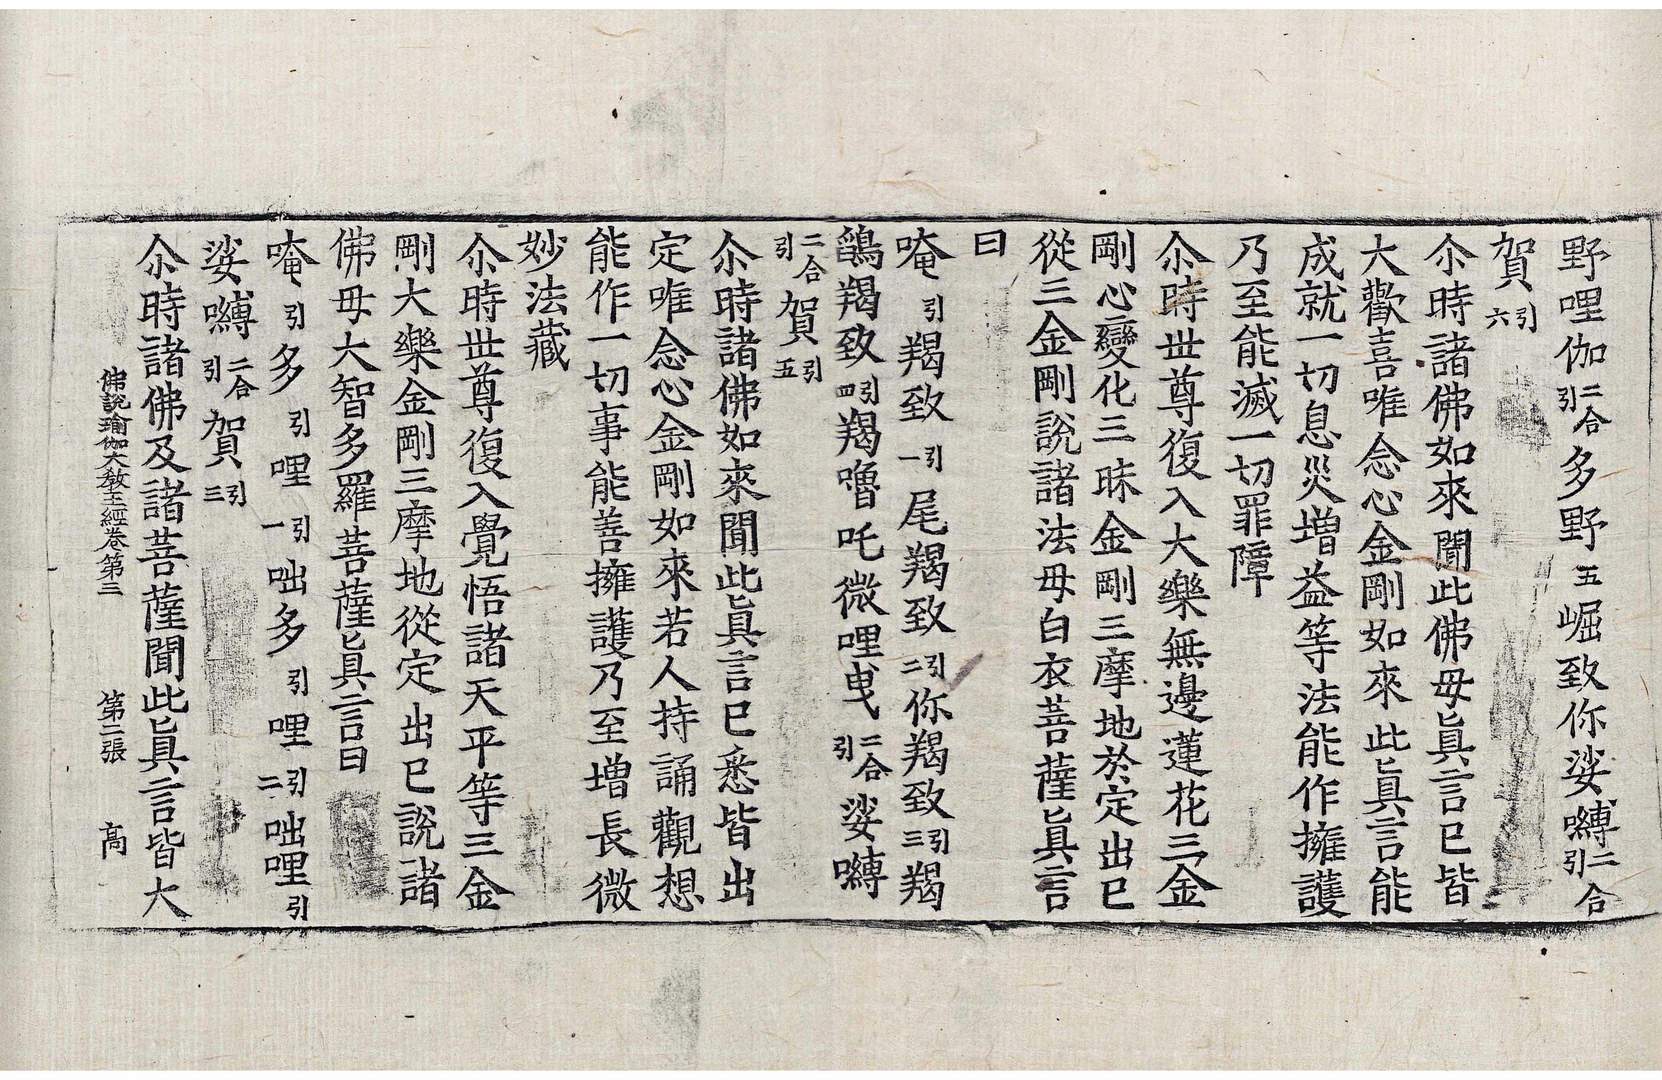 野哩伽二合引多野五崛致你娑嚩二合引
賀引六
尒時諸佛如來聞此佛母眞言已皆
大歡喜唯念心金剛如來此眞言能
成就一切息災增益等法能作擁護
乃至能滅一切罪障
尒時世尊復入大樂無邊蓮花三金
剛心變化三昧金剛三摩地於定出已
從三金剛說諸法母白衣菩薩眞言
曰
唵引羯致引一尾羯致引二你羯致引三羯
鵮羯致引四羯嚕吒微哩曳二合引娑嚩
二合引賀引五
尒時諸佛如來聞此眞言已悉皆出
定唯念心金剛如來若人持誦觀想
能作一切事能善擁護乃至增長微
妙法藏
尒時世尊復入覺悟諸天平等三金
剛大樂金剛三摩地從定出已說諸
佛母大智多羅菩薩眞言曰
唵引多引哩引一咄多引哩引二咄哩引
娑嚩二合引賀引三
尒時諸佛及諸菩薩聞此眞言皆大
佛說瑜伽大教王經卷第三 第二張 高